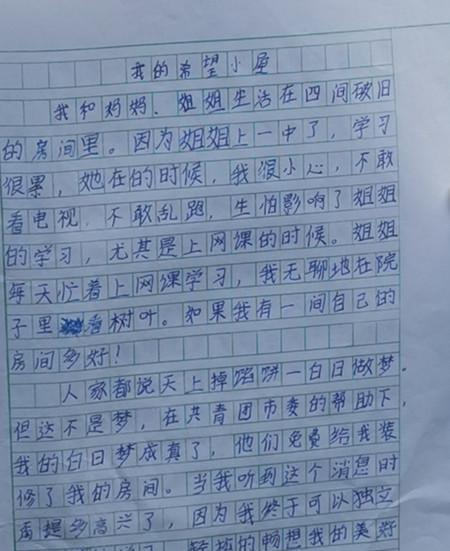 我的希望小屋
我和妈妈、姐姐生活在四间破旧
的房间里。因为姐姐上一中了，学习
很累，她在的时候，我很小心，不敢
看电视，不敢乱跑，生怕影响了姐姐
的学习，尤其是上网课的时候。姐姐
每天忙着上网课学习，我无聊地在院
子里看树叶。如果我有一间自己的
房间多好！
人家都说天上掉馅饼一白日做梦。
但这不是梦，在共青团市委的帮助下，
我的白日梦成真了，他们免费给我装
修了我的房间。当我听到这个消息时
再提多高兴了，因为我终于可以独立
轻松的畅想我的美好